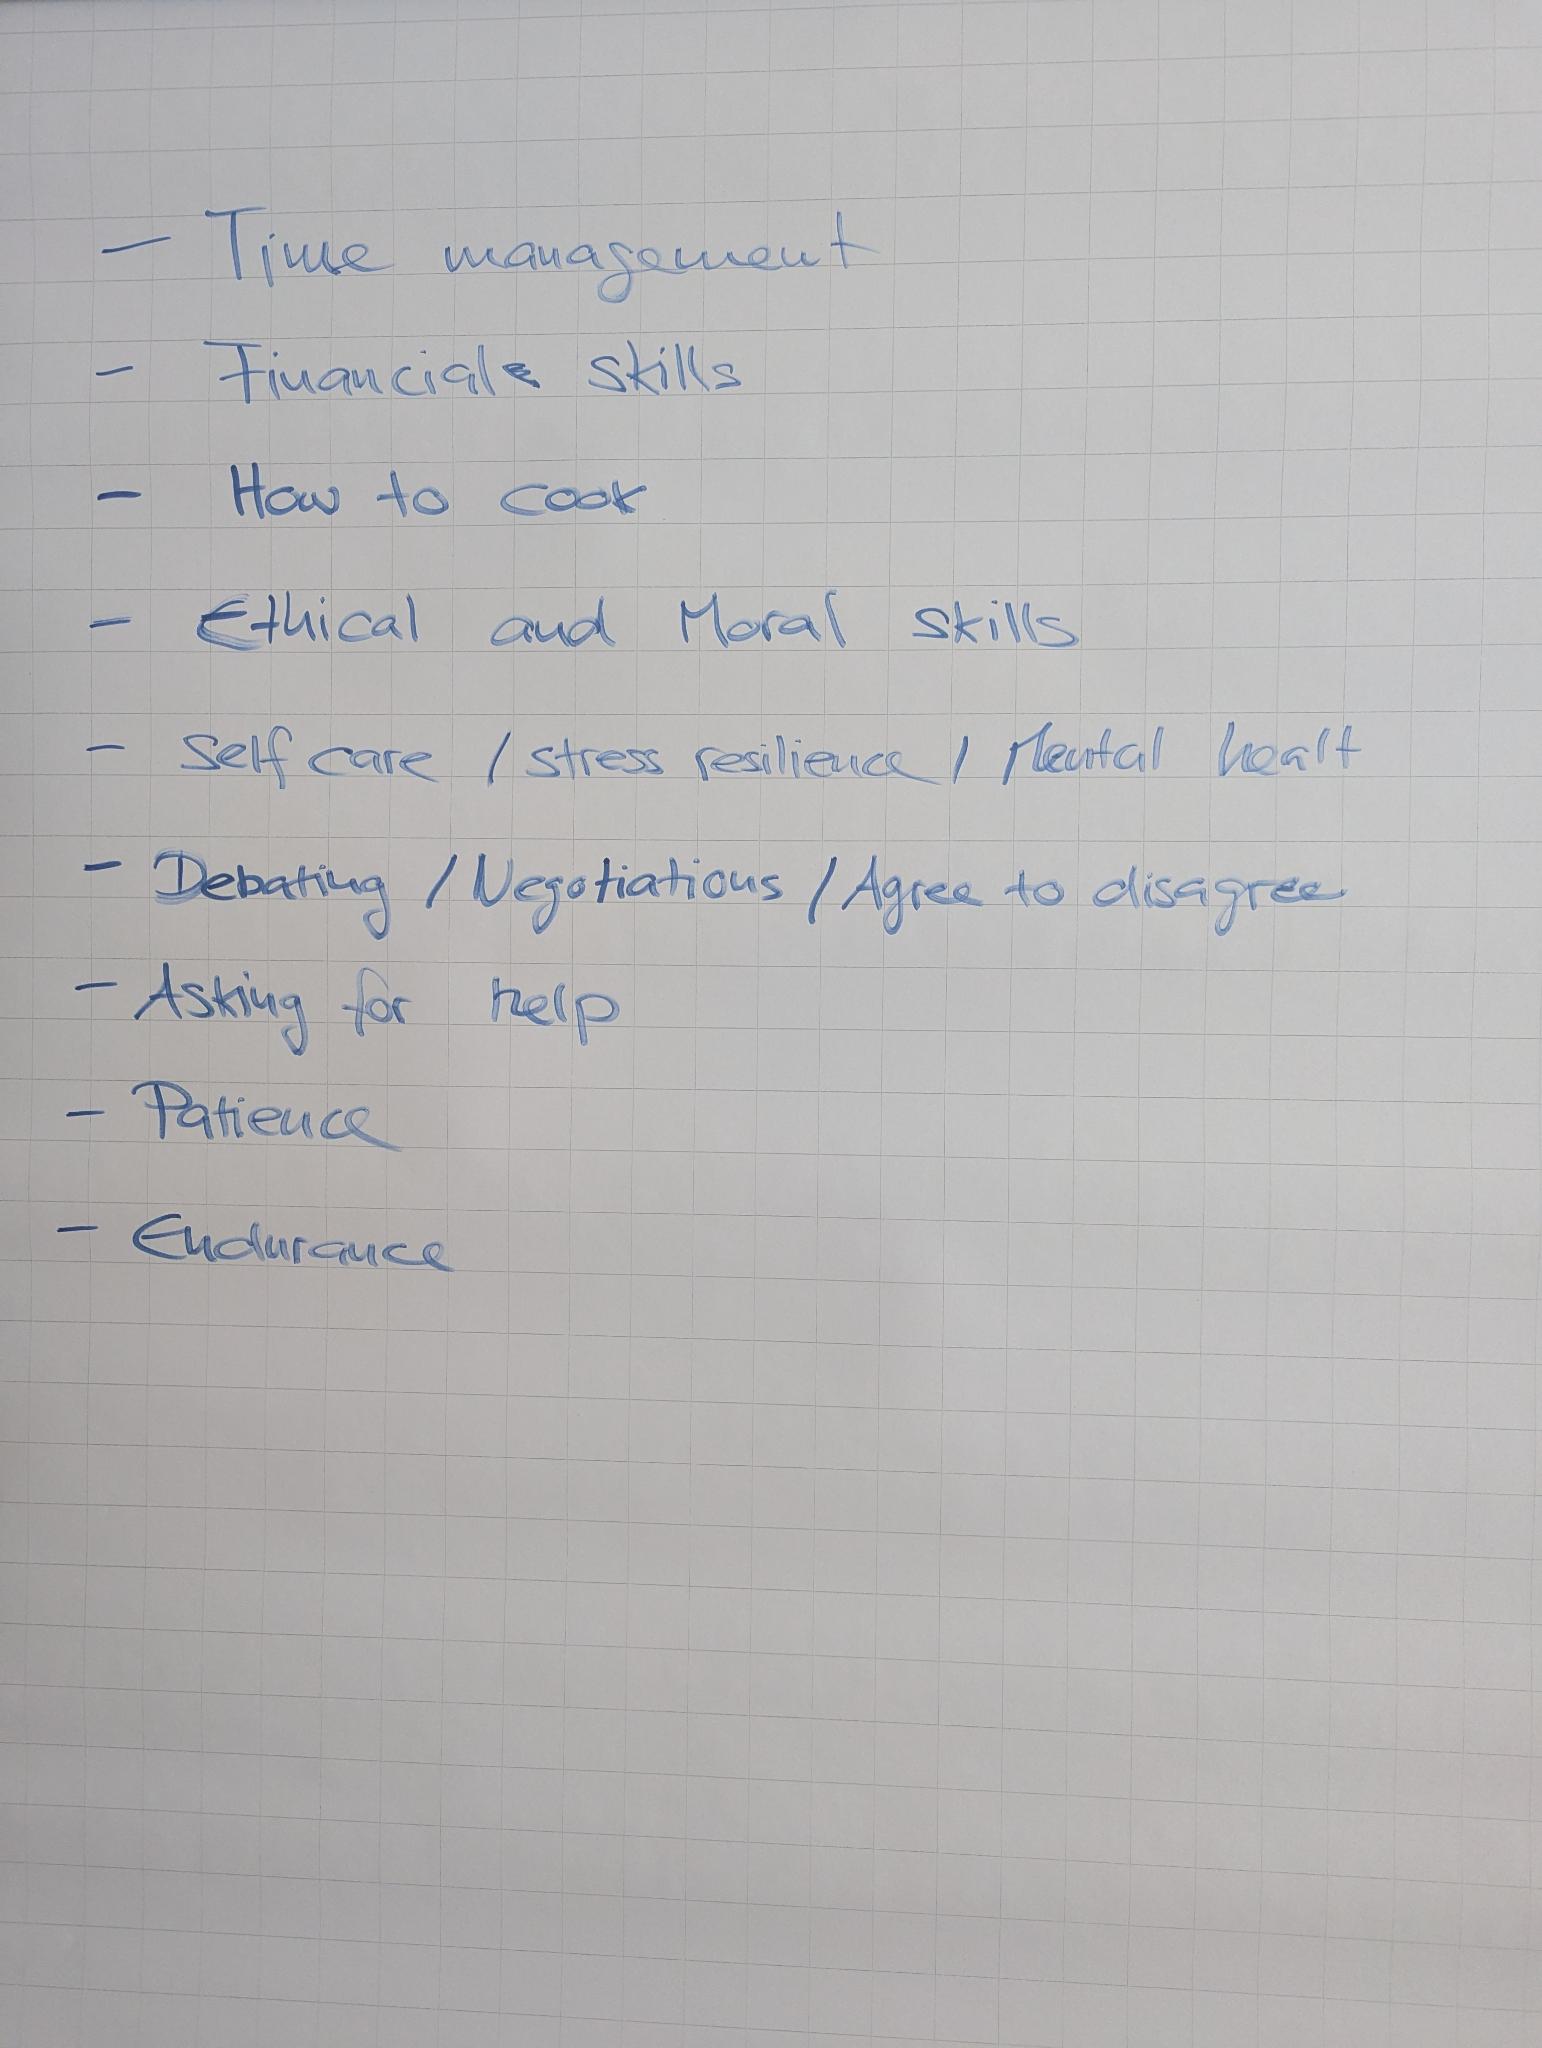 - Time management
- Financial skills
- How to cook
- Ethical and Moral skills
- Self care / stress resilience / Mental healt
- Debating / Negotiations / Agree to disagree
- Asking for help
- Patience
- Endurance